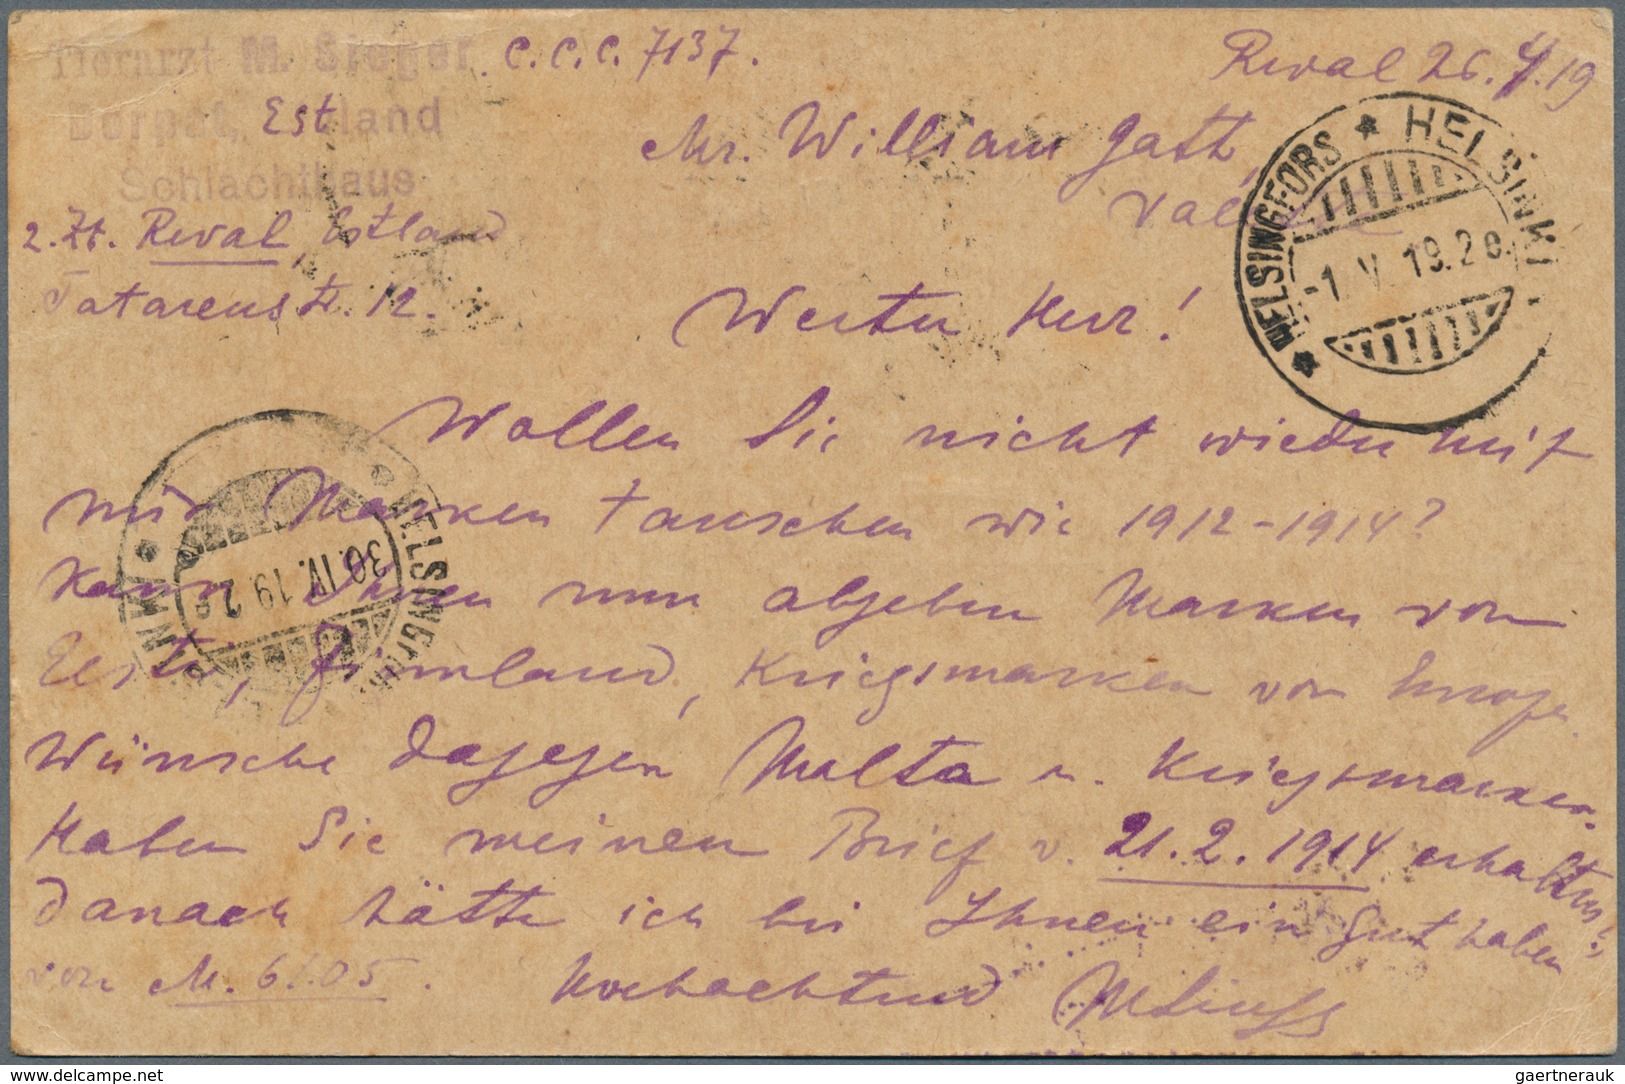 Tierarzt M. Sieger. C.C.C. 7137.
Reval 26.4.19
Dorpat, Estland
Schlachthaus
Mr. William Gatt,
z. Zt. Reval, Estland
Tatarenstr. 12.
Werter Herr!
Wollen Sie nicht wieder mit
mir Marken tauschen wie 1912-1914?
Kann Ihnen nun abgeben Marken von
Eesti, Finnland, Kriegsmarken von Europa.
Wünsche dagegen Malta u. Kriegsmarken.
Haben Sie meinen Brief v. 21.2.1914 erhalten?
danach hätte ich bei Ihnen ein Guthaben
von M. 61.05.
Hochachtend
HELSINGFORS * HELSINKI
-1.V.19.2e.
HELSINGFORS
30.IV.19.2e
gaertnerauk
delcampe.net